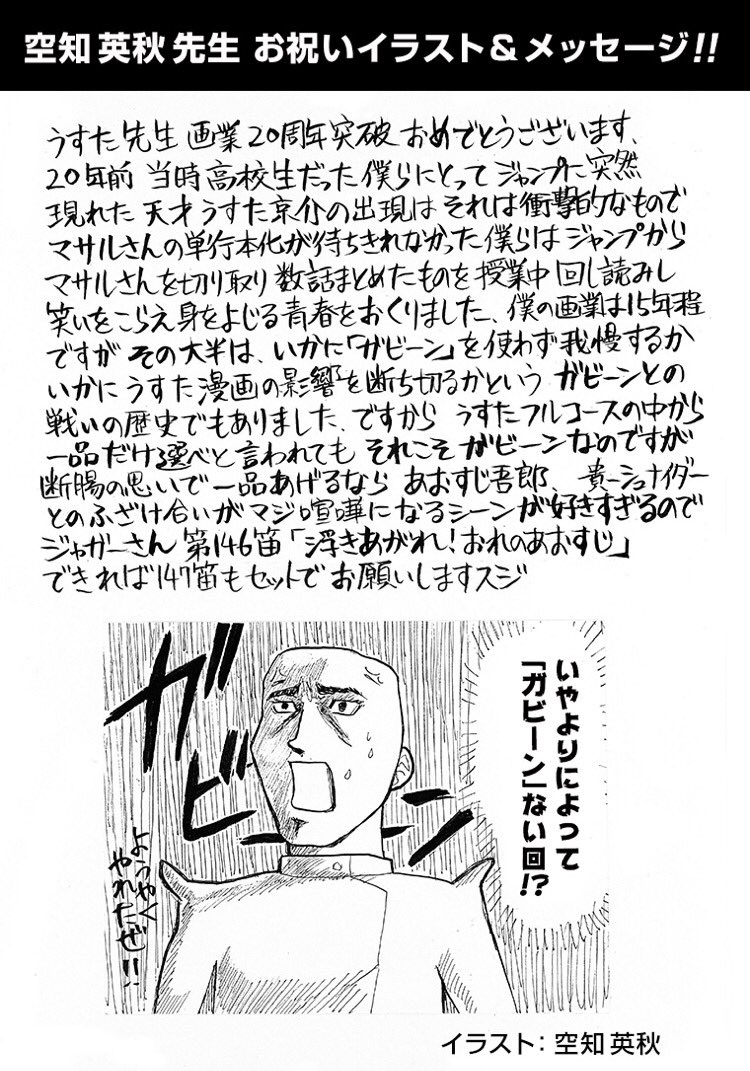 空知 英秋 先生 お祝いイラスト&メッセージ!!
うすた先生 画業20周年突破 おめでとうございます、
20年前 当時高校生だった僕らにとって ジャンプに突然
現れた 天才うすた京介の出現は それは衝撃的なもので
マサルさんの単行本化が待ちきれなかった僕らは ジャンプから
マサルさんを切り取り 数話まとめたものを 授業中 回し読みし
笑いをこらえ身をよじる青春をおくりました、僕の画業は15年程
ですが その大半は、いかに「ガビーン」を使わず我慢するか
いかに うすた漫画の影響を断ち切るかという ガビーンとの
戦いの歴史でもありました、ですから うすたフルコースの中から
一品だけ選べと言われても それこそ ガビーンなのですが
断腸の思いで一品あげるなら あおすじ吾郎、貴一シュナイダー
とのふざけ合いがマジ喧嘩になるシーンが好きすぎるので
ジャガーさん 第146笛「浮きあがれ!おれのあおすじ」
できれば147笛もセットで お願いしますスジ
いやよりによって
「ガビーン」ない回!?
ガビーン
ようやく
やれたぜ!!
イラスト: 空知 英秋